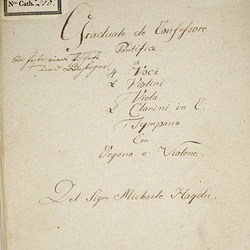 Nro Cath.
Graduale de Confessore
Pontifice
a
4 Voci
2 Violini
1 Viola
2 Clarini in C.
Tympano
Con
Organo e Violone.
Del Sigre Michaele Haydn.